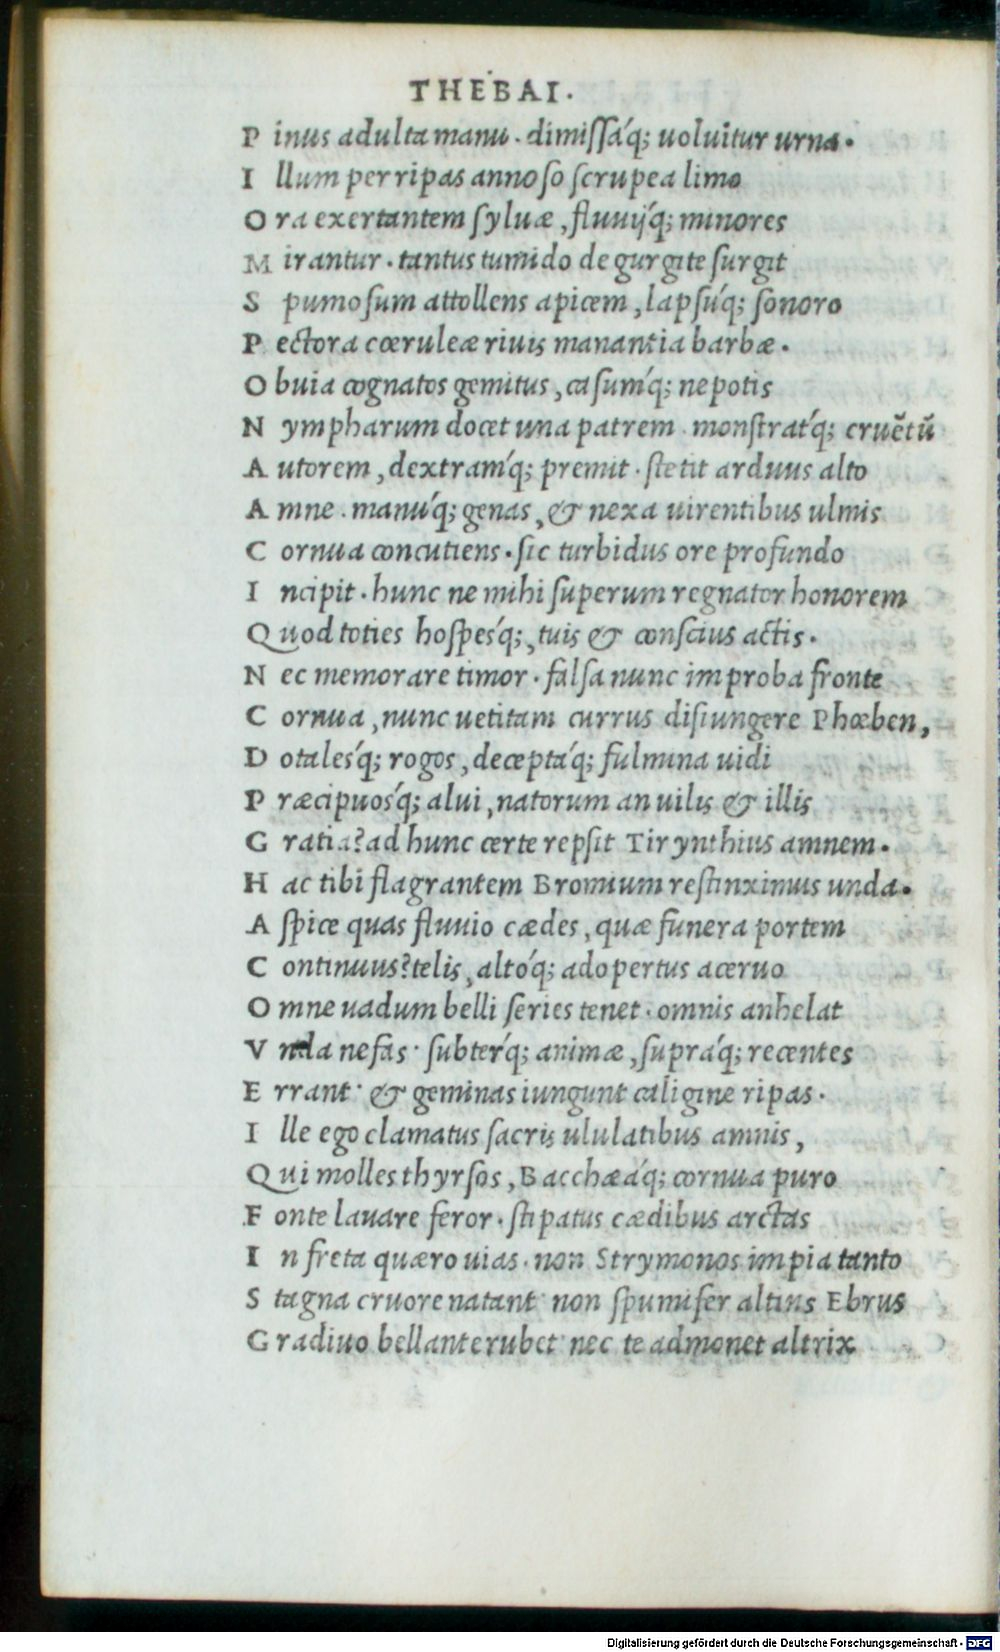 THEBAI.
P inus adulta manu. dimissáq; uoluitur urna.
I llum per ripas annoso scrupea limo
O ra exertantem syluæ, fluuijq́; minores
M irantur. tantus tumido de gurgite surgit
S pumosum attollens apicem, lapsuq́; sonoro
P ectora cœruleæ riuis manantia barbæ.
O buia cognatos gemitus, casumq́; nepotis
N ympharum docet una patrem. monstratq́; cruẽtũ
A utorem, dextramq́; premit. stetit arduus alto
A mne. manuq́; genas, & nexa uirentibus ulmis
C ornua concutiens. sic turbidus ore profundo
I ncipit. hunc ne mihi superum regnator honorem
Q uod toties hospesq́;, tuis & conscius actis.
N ec memorare timor. falsa nunc improba fronte
C ornua, nunc uetitam currus disiungere Phœben,
D otalesq́; rogos, deceptaq́; fulmina uidi
P ræcipuosq́; alui, natorum an uilis & illis
G ratia? ad hunc certe repsit Tirynthius amnem.
H ac tibi flagrantem Bromium restinximus unda.
A spice quas fluuio cædes, quæ funera portem
C ontinuus? telis, altoq́; adopertus aceruo
O mne uadum belli series tenet. omnis anhelat
V nda nefas. subterq́; animæ, supraq́; recentes
E rrant. & geminas iungunt caligine ripas.
I lle ego clamatus sacris ululatibus amnis,
Q ui molles thyrsos, Bacchæaq́; cornua puro
F onte lauare feror. stipatus cædibus arctas
I n freta quæro uias. non Strymonos impia tanto
S tagna cruore natant. non spumifer altius Ebrus
G radiuo bellante rubet. nec te admonet altrix
Digitalisierung gefördert durch die Deutsche Forschungsgemeinschaft - DFG